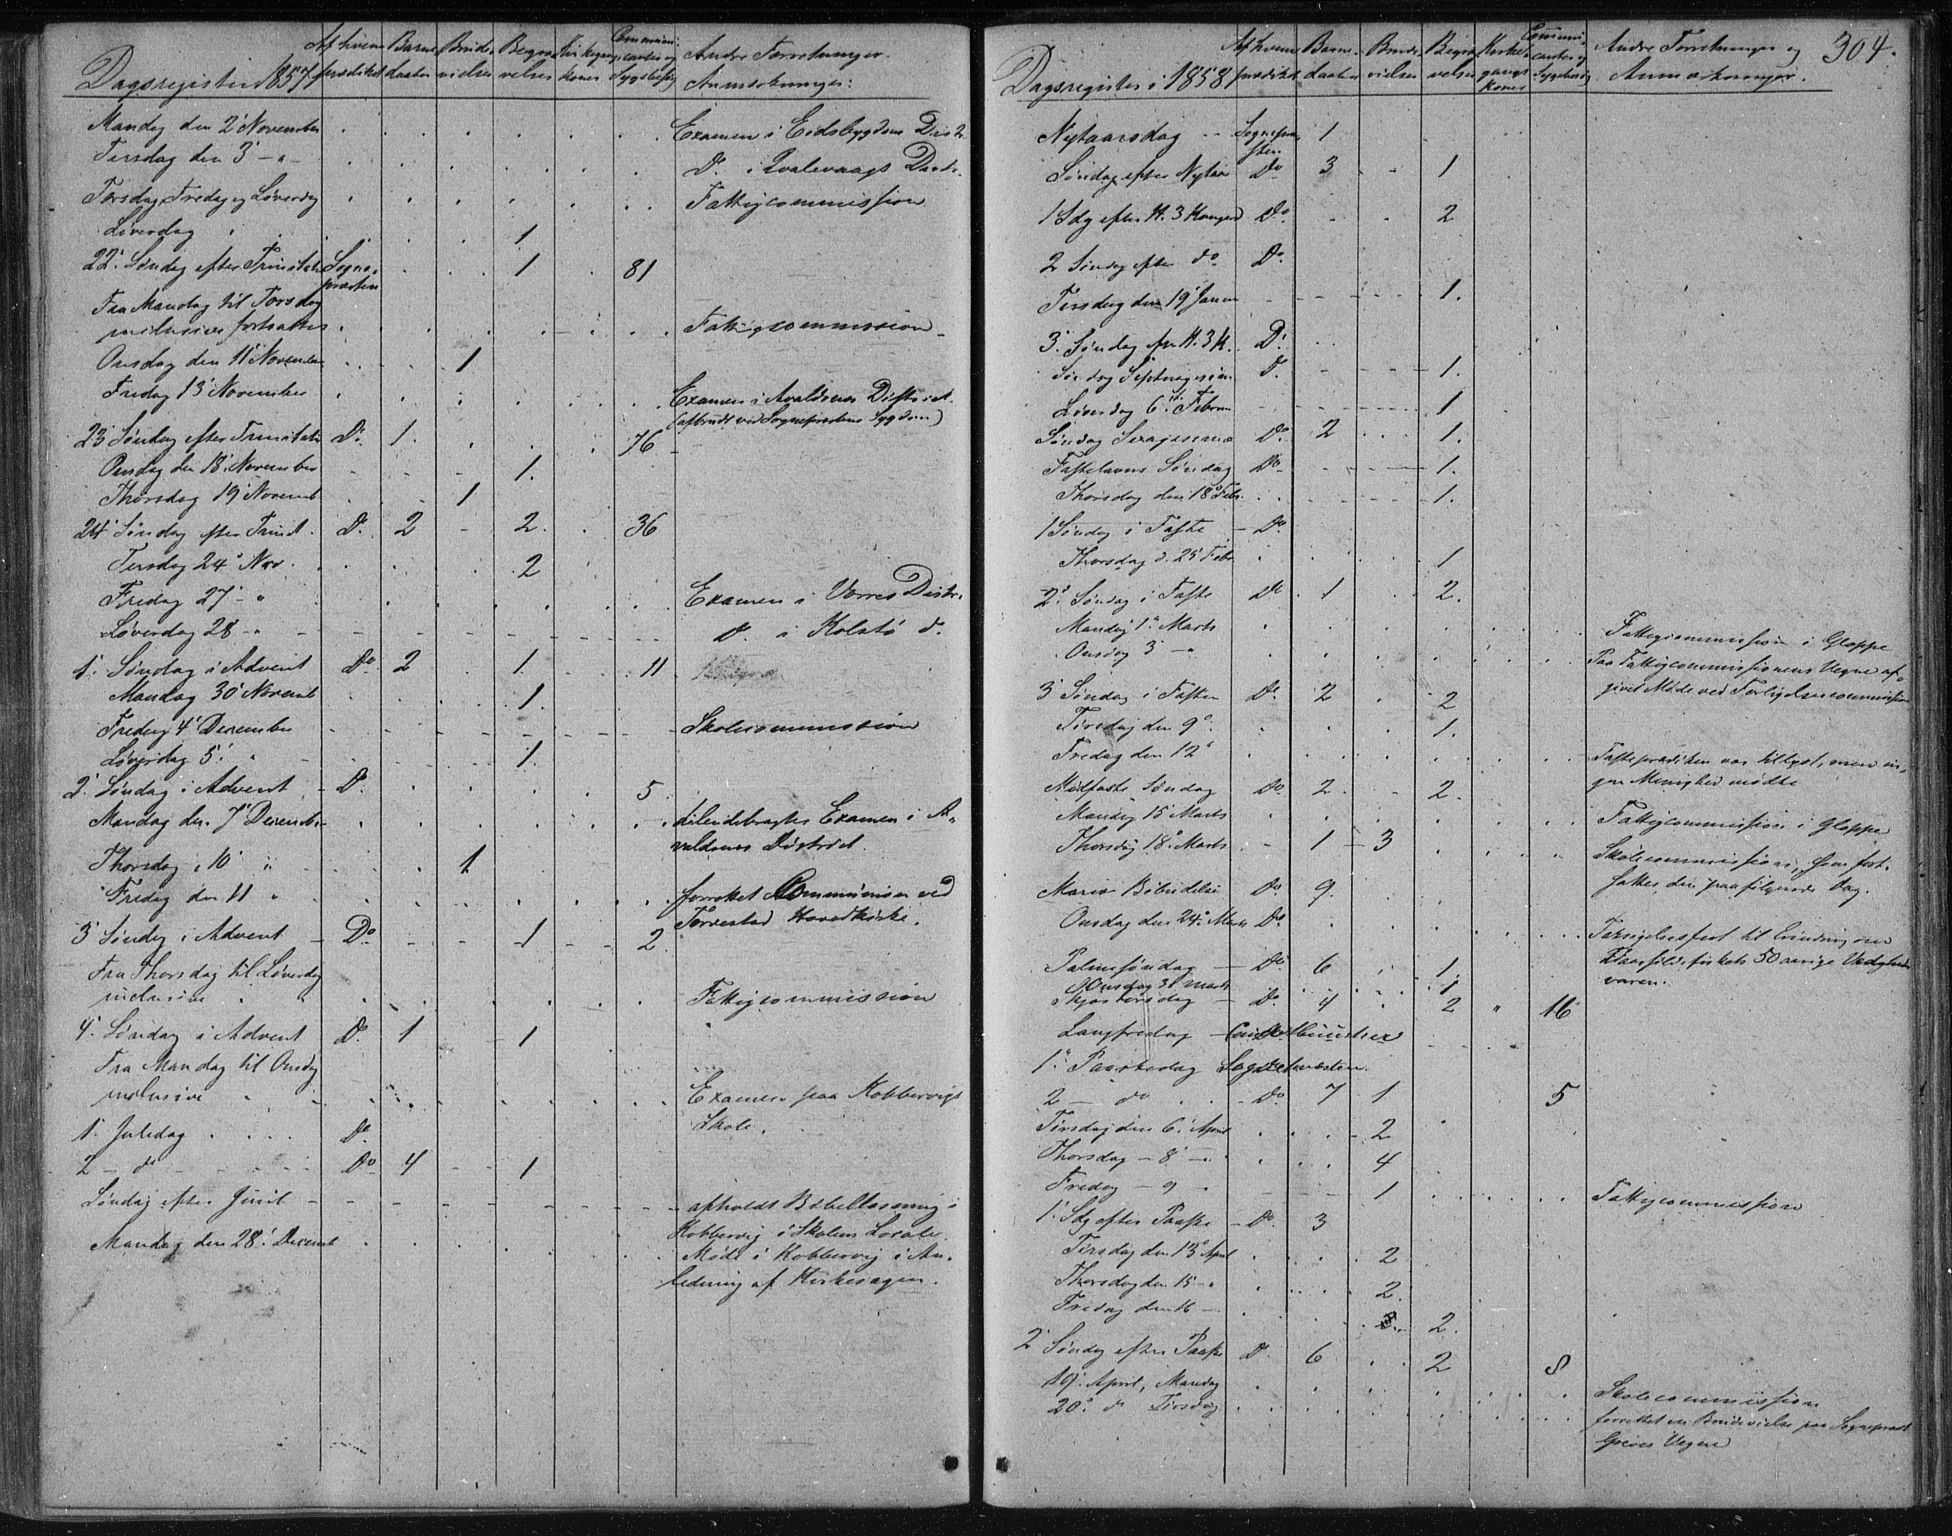 Dagsregister 1857
Af hvem prædiket
Barne daaben
Brude vielser
Begra velser
Kirkegangs koner
Communi- canter og Sygebesøg
Andre Forretninger
Anmærkninger:
Mandag den 2' November Examen i Eidsbygdens Distr.
Tirsdag den 3' - " - Do. i Qvalevaags Distr.
Torsdag, Fredag og Løverdag Fattigcommission
Løverdag 1
22' Søndag efter Trinitatis Sognepræsten 1 81
Fra Mandag til Torsdag
inclusive fortsattes Fattigcommission
Onsdag den 11' November 1
Fredag 13' November Examen i Avaldsnes District
(afbrudt ved Sognepræstens Sygdom)
23' Søndag efter Trinitatis Do. 1. 76
Onsdag den 18' November 1.
Thorsdag 19' Novemb 1
24' Søndag efter Trinit. Do. 2 - 2. 36
Tirsdag 24' Nov. 2
Fredag 27 - " Examen i Vorres Distr.
Løverdag 28 - " - Do. i Kolstø Do.
1' Søndag i Advent Do 2 1. 11
Mandag 30' Novemb 1.
Fredag 4' December Skolecommission
Løverdag 5' " 1.
2' Søndag i Advent Do. 5.
Mandag den 7' Decemb tilendebragtes Examen i A-
valdsnes District.
Thorsdag 10' " 1
Fredag den 11 " forrettet Communion ved
Torvestad Hovedkirke.
3' Søndag i Advent Do 1 2
Fra Thorsdag til Løverdag
inclusive Fattigcommission
4' Søndag i Advent Do. 1 1
Fra Mandag til Onsdag
inclusive Examen paa Kobbervigs
Skole.
1' Juledag Do.
2 - do Do 4 1
Søndag efter Juul afholdt Bibellæsning i
Kobbervig i Skolens Locale.
Mandag den 28' Decemb Møde i Kobbervig i An-
ledning af Kirkesagen.
304.
Dagsregister i 1858
Af hvem prædiket
Barne- daaben
Brude- vielser
Begra- velser
Kirke- gangs koner
Communi- canter og Sygebesøg
Andre Forretninger og
Anmærkninger.
Nytaarsdag Sognepræsten 1
Søndag efter Nytaar Do 3 1
1 Sdg efter H. 3 Konger Do. 2
2 Søndag efter do Do.
Tirsdag den 19' Januar 1.
3' Søndag efter H. 3 K. Do.
Søndag Septuagesima Do. 1.
Løverdag 6' Februar 1
Søndag Sexagesima Do. 2 1.
Fastelavns Søndag Do 1.
Thorsdag den 18' Feb. 1.
1 Søndag i Faste - Do
Thorsdag d. 25' Feb 1
2' Søndag i Faste Do 1 2.
Mandag 1' Marts Fattigcommission i Gloppe
Onsdag 3' - " Paa Fattigcommissionens Vegne af-
givet Møde ved Forligelsescommission
3' Søndag i Fasten Do. 2 2
Tirsdag den 9' 1.
Fredag den 12' Fasteprædiken var tillyst, men in-
gen Menighed mødte
Midfaste Søndag Do. 2. 2.
Mandag 15' Marts Fattigcommission i Gloppe
Thorsdag 18' Marts 1 3 Skolecommission, som fort-
sattes den paafølgende Dag.
Mariæ Bebudelse Do. 9.
Onsdag den 24' Marts Do.
Palmesøndag Do. 6 1.
Onsdag 31 marts 1
Skjærtorsdag Do. 4 2 " 16
Langfredag
1' Paaskedag Sognepræsten.
2 - do Do. 7 1 5
Tirsdag den 6' April 2
Thorsdag - 8' - " 4
Fredag - 9 - 1 Fattigcommission
1' Sdg efter Paaske - Do. 3
Tirsdag den 13' April 2
Thorsdag den 15 - " 2.
Fredag den 16 - 2.
2' Søndag efter Paaske Do. 6 2 8
19' April, Mandag Skolecommission
20' do Tirsdag forrettet en Brudevielse paa Sognepræst
Vegne